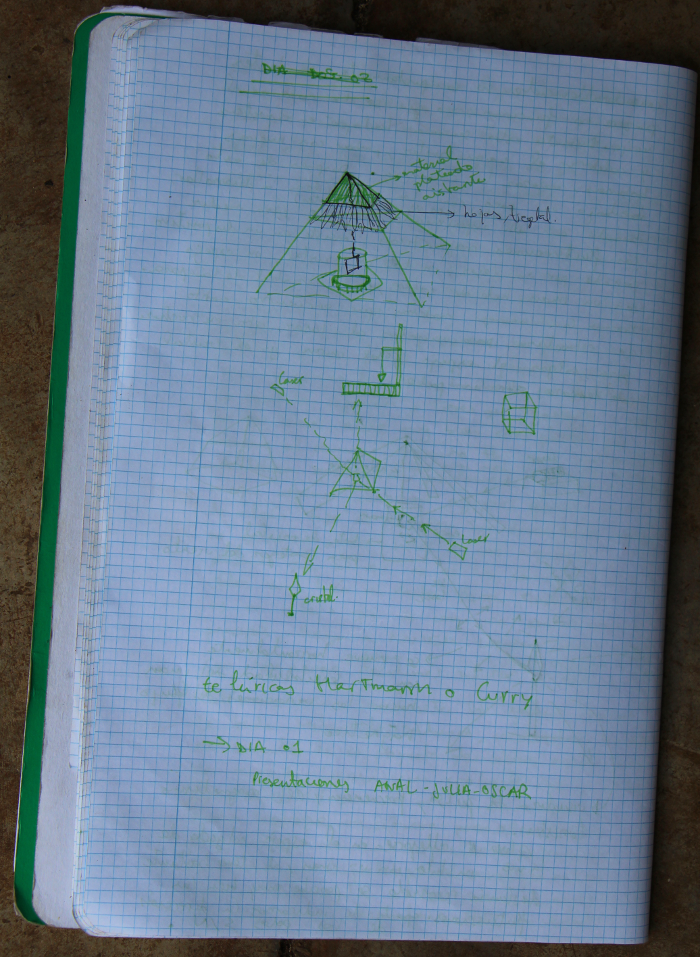 DIA 02
material
plateado
aislante
hojas/vegetal.
Laser
Laser
cristal.
telúricas Hartmann o Curry
→ DIA 01
Presentaciones ANAL - JULIA - OSCAR